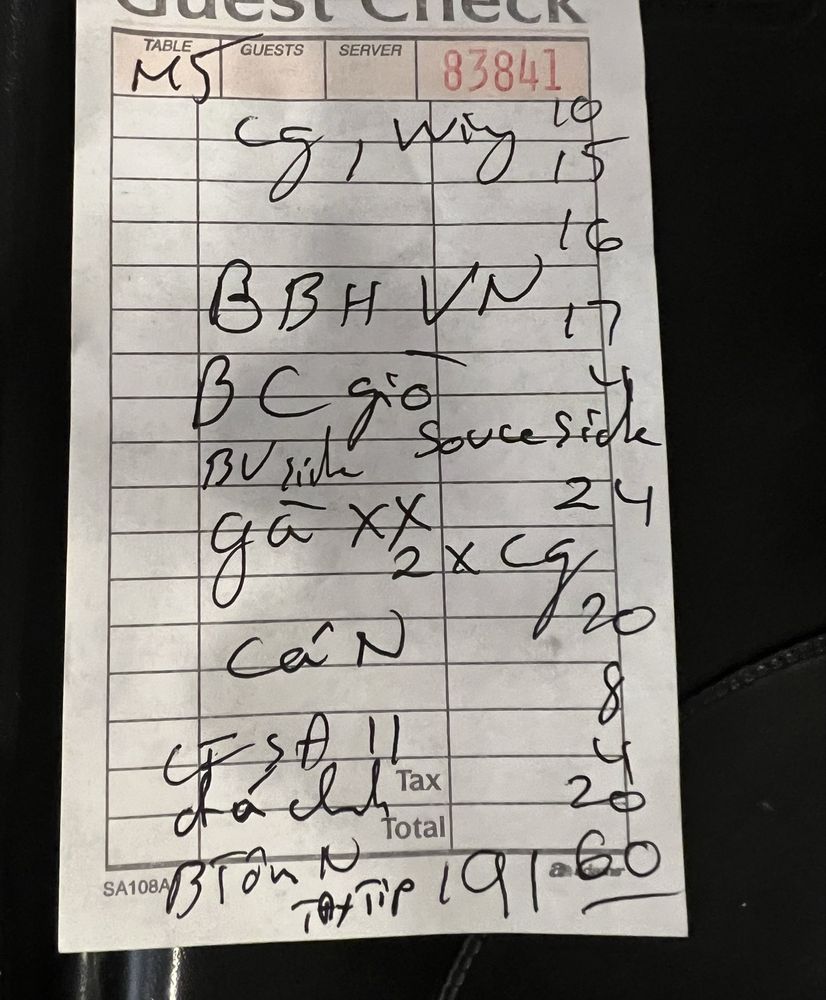 Guest Check
TABLE GUESTS SERVER 83841
M5
cg, wing 10
15
16
BBH VN
17
BC giò 4
BV side Souce side
gà XX 24
2 x cg
Cá N 20
8
CF SĐ 11 4
Tax
đá chanh 20
Total
BTôm N 60
SA108A
Tax Tip 191